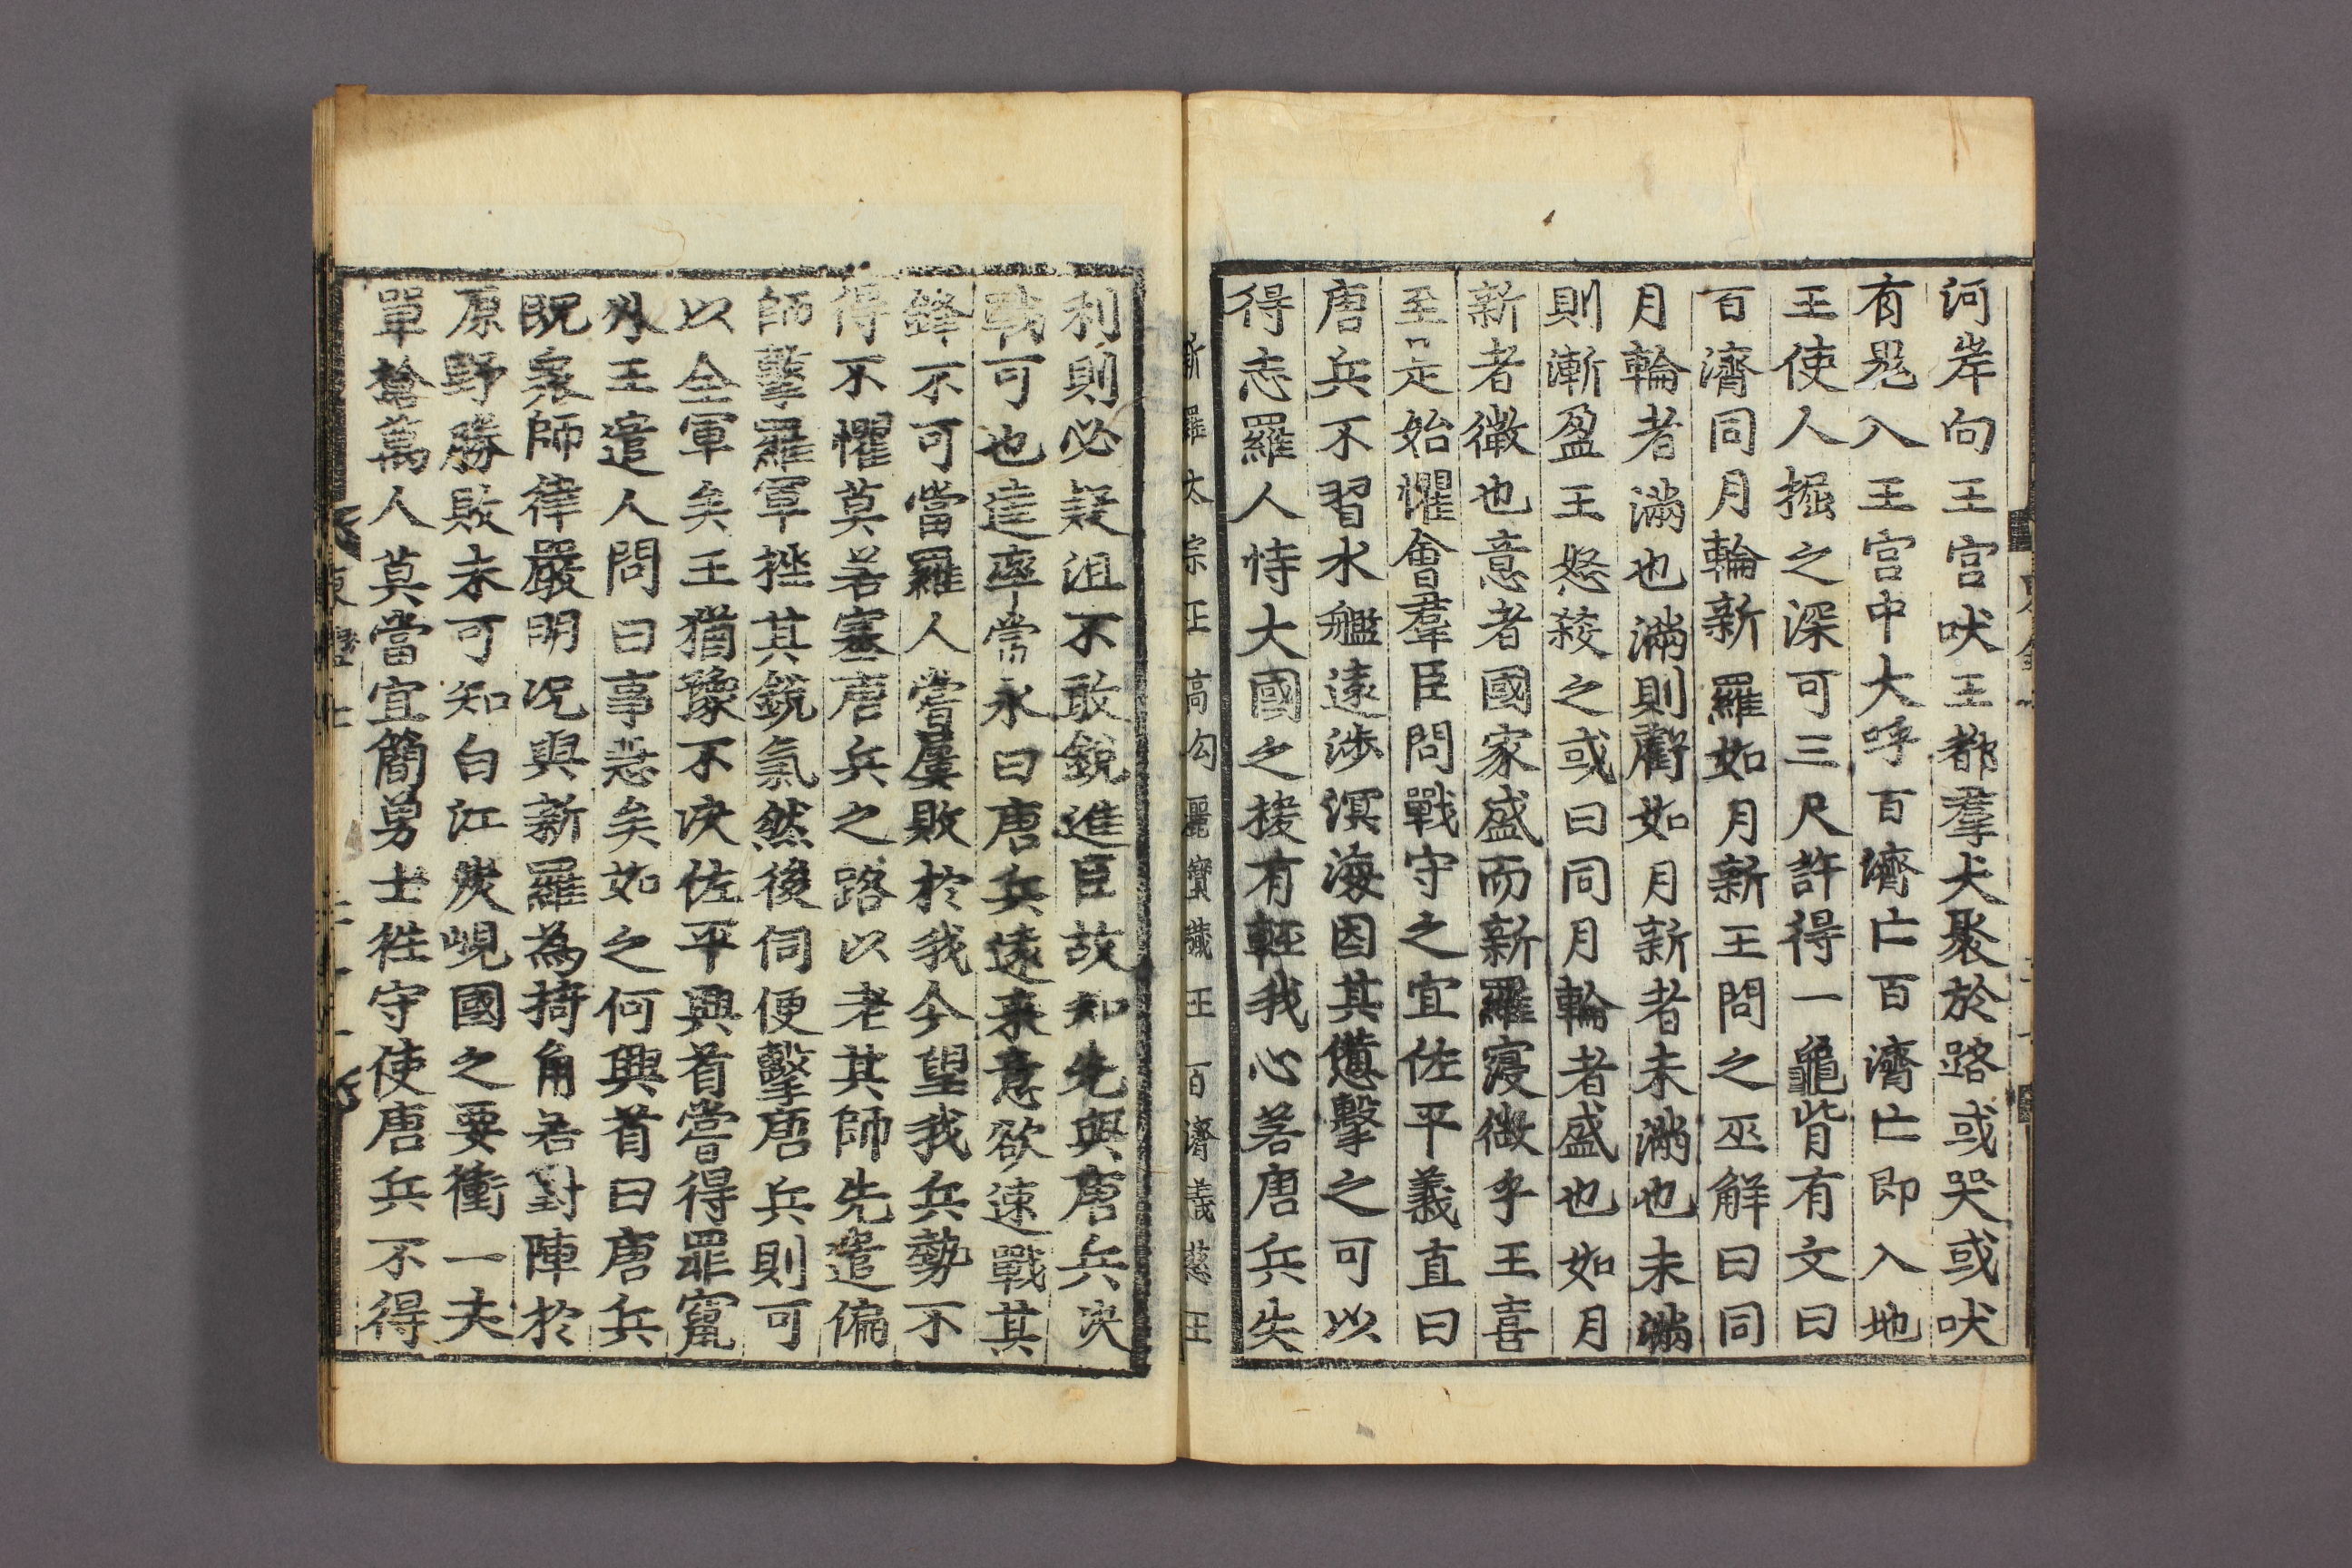 河岸向王宮吠王都羣犬聚於路或哭或吠
有鬼入王宮中大呼百濟亡百濟亡即入地
王使人掘之深可三尺許得一龜背有文曰
百濟同月輪新羅如月新王問之巫解曰同
月輪者滿也滿則虧如月新者未滿也未滿
則漸盈王怒殺之或曰同月輪者盛也如月
新者微也意者國家盛而新羅寖微乎王喜
至是始懼會羣臣問戰守之宜佐平義直曰
唐兵不習水艦遠涉溟海因其憊擊之可以
得志羅人恃大國之援有輕我心若唐兵失
新羅太宗王高勾麗寶藏王百濟義慈王
利則必疑沮不敢銳進臣故知先與唐兵决
戰可也達率常永曰唐兵遠來意欲速戰其
鋒不可當羅人嘗屢敗於我今望我兵勢不
得不懼莫若塞唐兵之路以老其師先遣偏
師擊羅軍挫其銳氣然後伺便擊唐兵則可
以全軍矣王猶豫不决佐平興首嘗得罪竄
外王遣人問曰事急矣如之何興首曰唐兵
旣衆師律嚴明况與新羅為掎角若對陣於
原野勝敗未可知白江炭峴國之要衝一夫
單槍萬人莫當宜簡勇士徃守使唐兵不得